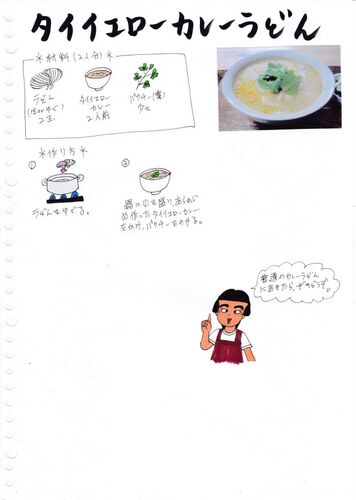 タイイエローカレーうどん
＊材料(2人分)＊
うどん
2玉
タイイエロー
カレー
2人前
パクチー(葉)
少々
＊作り方＊
①
うどんをゆでる。
②
器に①を盛り、あらかじ
め作ったタイイエローカレー
をかけ、パクチーをのせる。
普通のカレーうどん
にあきたら、ぜひどうぞ。